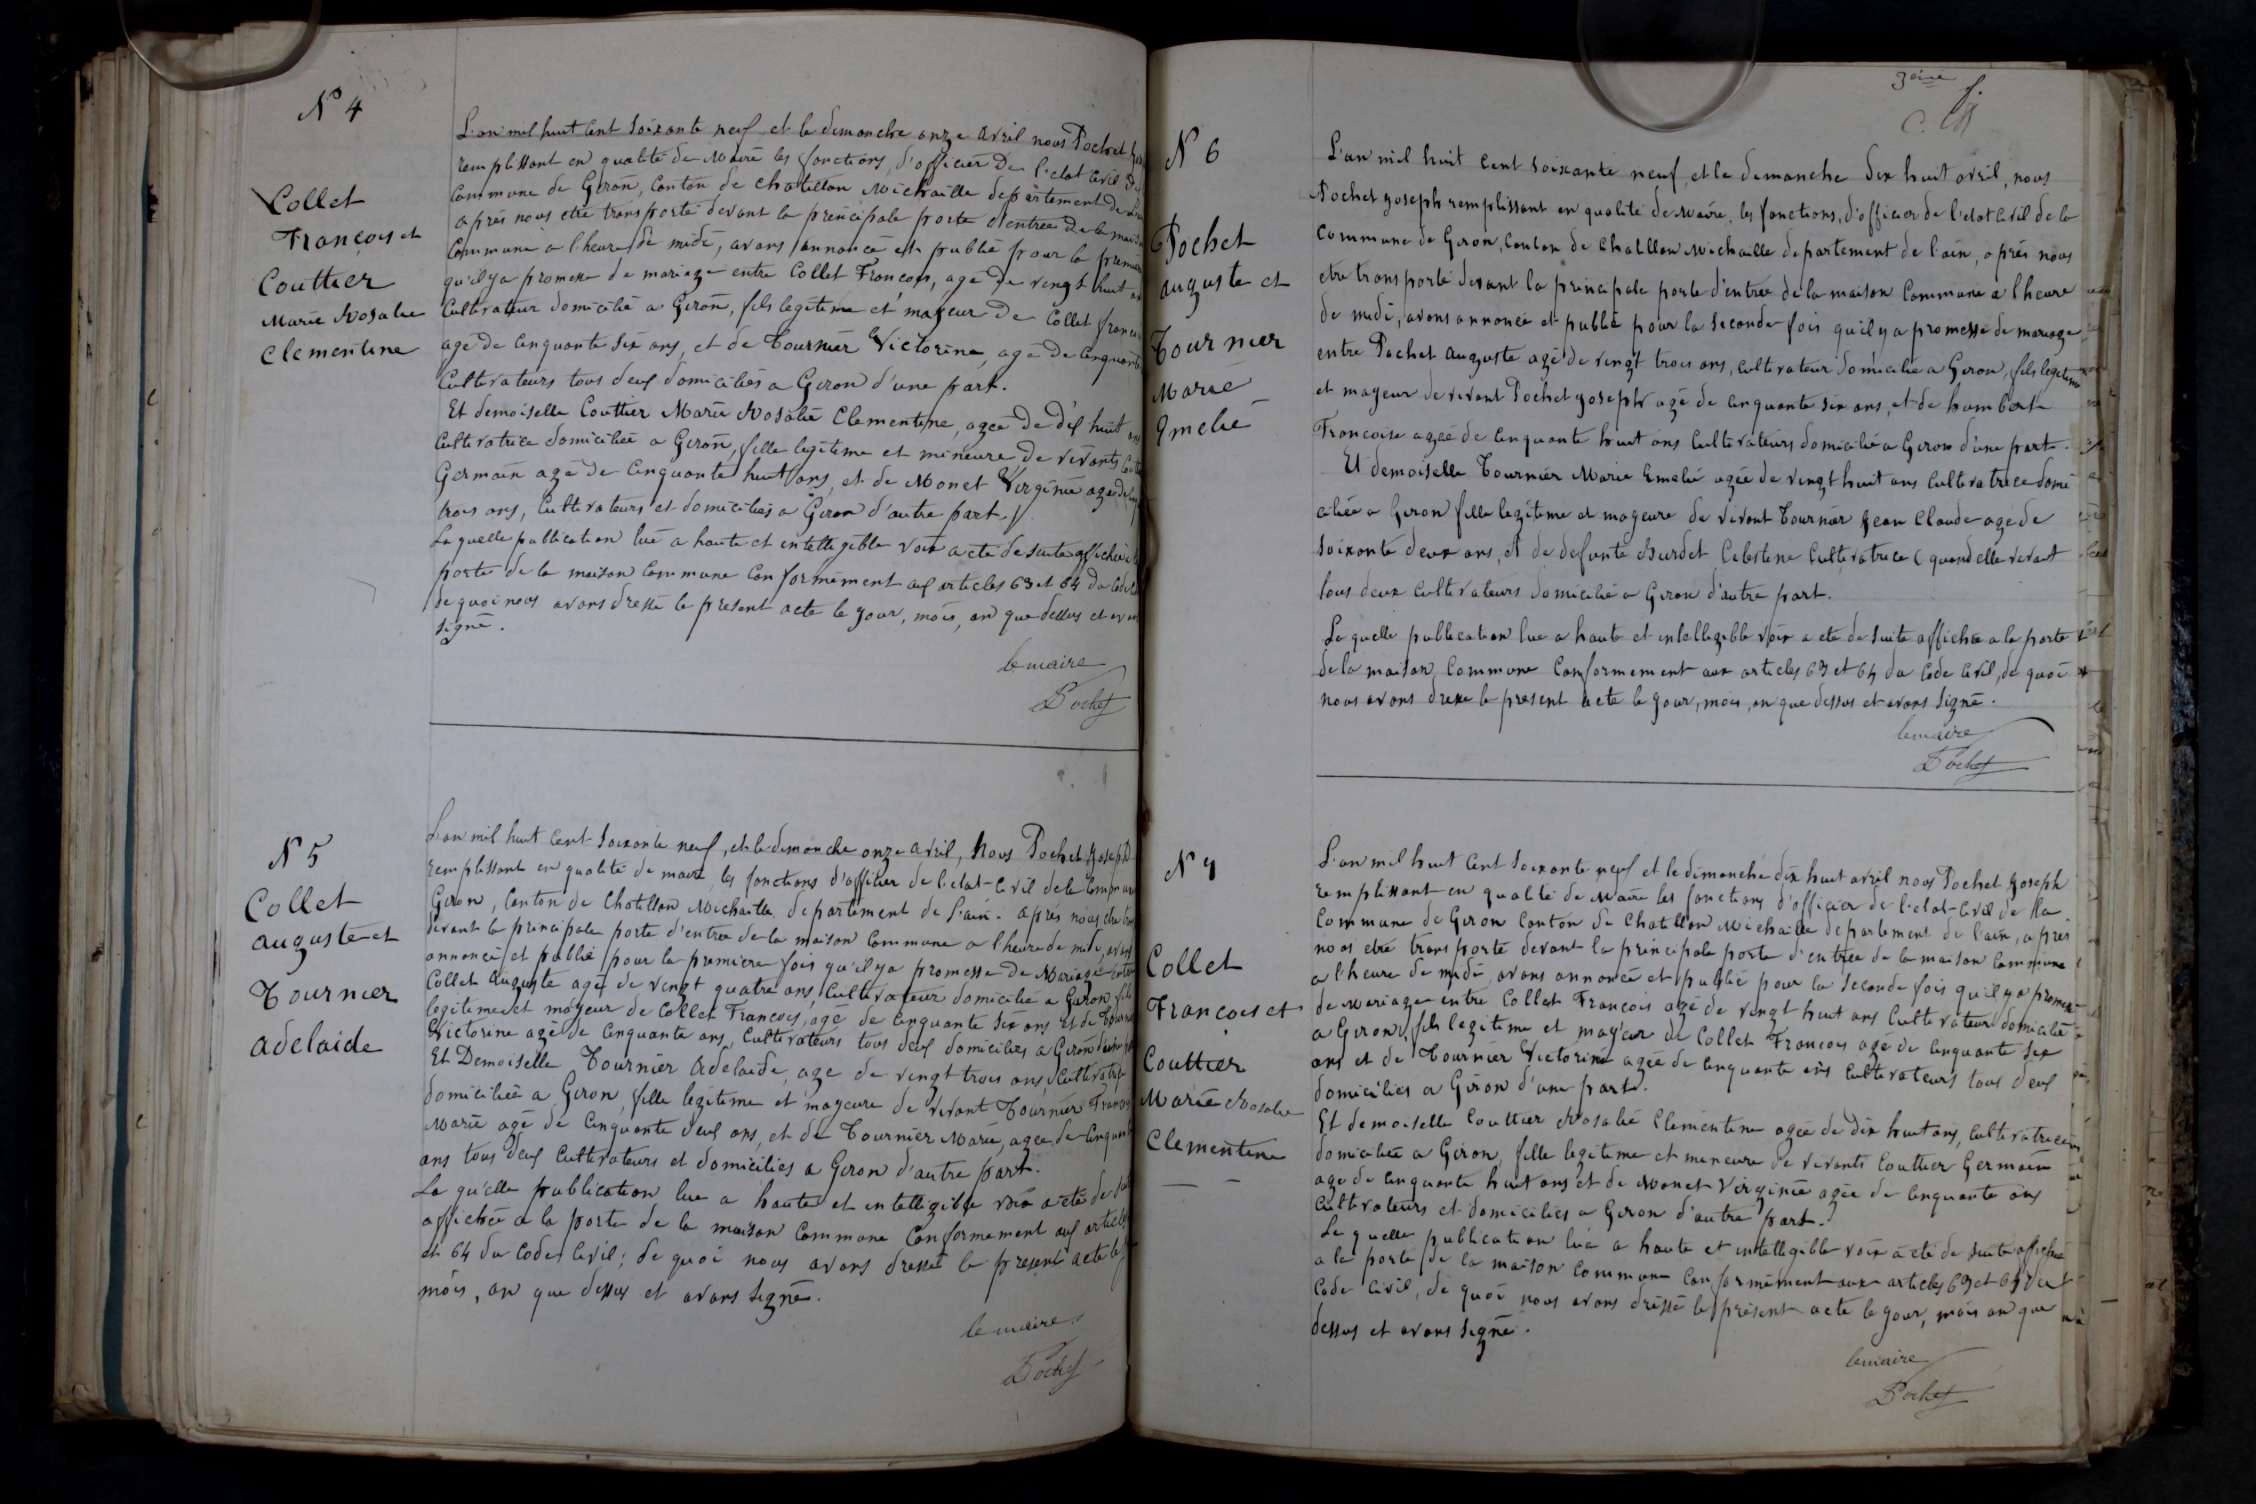 N° 4
Collet
François et
Couttier
Marie Rosalie
Clementine
L'an mil huit cent soixante neuf et le dimanche onze avril nous Pochet
remplissant en qualité de Maire les fonctions d'officier de l'etat civil de
commune de Giron, canton de chatillon Michaille departement de
après nous etre transporté devant la principale porte d'entrée de la maison
commune à l'heure de midi, avons annoncé et publié pour la premiere
qu'il y a promesse de mariage entre Collet François, agé de vingt huit ans
cultivateur domicilié a Giron, fils legitime et mageur de Collet françois
agé de cinquante six ans, et de Tournier Victorine, agé de cinquante
cultivateurs tous deux domiciliés a Giron d'une part.
Et demoiselle Couttier Marie Rosalie Clementine, agée de dix huit ans
cultivatrice domiciliée a Giron, fille legitime et mineure de vivants
Germain agé de cinquante huit ans, et de Monet Virginie agée de
trois ans, cultivateurs et domiciliés a Giron d'autre part.
Laquelle publication lue a haute et intelligible voix a eté de suite affichée
porte de la maison commune conformément aux articles 63 et 64 du code
de quoi nous avons dressé le present acte le jour, mois, an que dessus et avons
signé.
le maire
Pochet
N 5
Collet
auguste et
Tournier
adelaide
L'an mil huit cent soixante neuf, et le dimanche onze avril, Nous Pochet Joseph
remplissant en qualité de maire, les fonctions d'officier de l'etat-civil de la commune
Giron, canton de Chatillon Michaille departement de l'ain. après nous etre
devant la principale porte d'entrée de la maison commune a l'heure de midi, avons
annoncé et publié pour la premiere fois qu'il y a promesse de Mariage entre
Collet Auguste agé de vingt quatre ans, cultivateur domicilié a Giron, fils
legitime et mageur de Collet François, agé de cinquante six ans et de Tournier
Victorine agé de cinquante ans, cultivateurs tous deux domiciliés a Giron d'une part
Et Demoiselle Tournier Adelaide, agé de vingt trois ans, cultivatrice
domiciliée a Giron, fille legitime et mageure de vivant Tournier François
Marie agé de cinquante deux ans, et de Tournier Marie, agée de cinquante
ans tous deux cultivateurs et domiciliés a Giron d'autre part.
La qu'elle publication lue a haute et intelligible voix a eté de
affichée a la porte de la maison commune conformement aux articles
et 64 du Code Civil; de quoi nous avons dressé le present acte le
mois, an que dessus et avons signé.
le maire
Pochet
3eme f.
N 6
Pochet
auguste et
Tournier
Marie
Emelie
L'an mil huit cent soixante neuf, et le dimanche dix huit avril, nous
Pochet Joseph remplissant en qualité de Maire, les fonctions, d'officier de l'etat civil de la
commune de Giron, canton de Chatillon Michaille departement de l'ain, après nous
etre transporté devant la principale porte d'entrée de la maison commune a l'heure
de midi, avons annoncé et publié pour la seconde fois qu'il y a promesse de mariage
entre Pochet Auguste agé de vingt trois ans, cultivateur domicilié a Giron, fils legitime
et mageur de vivant Pochet Joseph agé de cinquante six ans, et de humbert
Françoise agée de cinquante huit ans cultivateurs domicilié a Giron d'une part.
Et demoiselle Tournier Marie Emelie agée de vingt huit ans cultivatrice domi
ciliée a Giron fille legitime et mageure de vivant Tournier Jean Claude agé de
soixante deux ans, et de defunte Burdet Celestine cultivatrice (quand elle vivait
tous deux cultivateurs domicilié a Giron d'autre part.
La quelle publication lue a haute et intelligible voix a eté de suite affichée a la porte
de la maison commune conformement aux articles 63 et 64 du Code Civil, de quoi
nous avons dressé le present acte le jour, mois, an que dessus et avons signé.
le maire
Pochet
N 7
Collet
François et
Couttier
Marie Rosalie
Clementine
L'an mil huit cent soixante neuf et le dimanche dix huit avril nous Pochet Joseph
remplissant en qualité de Maire les fonctions d'officier de l'etat-civil de la
commune de Giron canton de Chatillon Michaille departement de l'ain, après
nous etre transporté devant la principale porte d'entrée de la maison commune
a l'heure de midi, avons annoncé et publié pour la seconde fois qu'il y a promesse
de mariage entre Collet François agé de vingt huit ans cultivateur domicilié
a Giron, fils legitime et mageur de Collet François agé de cinquante six
ans et de Tournier Victorine agée de cinquante ans cultivateurs tous deux
domiciliés a Giron d'une part.
Et demoiselle Couttier Rosalie Clementine agée de dix huit ans, cultivatrice
domiciliée a Giron, fille legitime et mineure de vivants Couttier Germain
agé de cinquante huit ans et de Monet Virginie agée de cinquante ans
cultivateurs et domiciliés a Giron d'autre part.
La quelle publication lue a haute et intelligible voix a eté de suite affichée
a la porte de la maison commune conformément aux articles 63 et 64 du
Code Civil, de quoi nous avons dressé le présent acte le jour, mois an que
dessus et avons signé.
le maire
Pochet